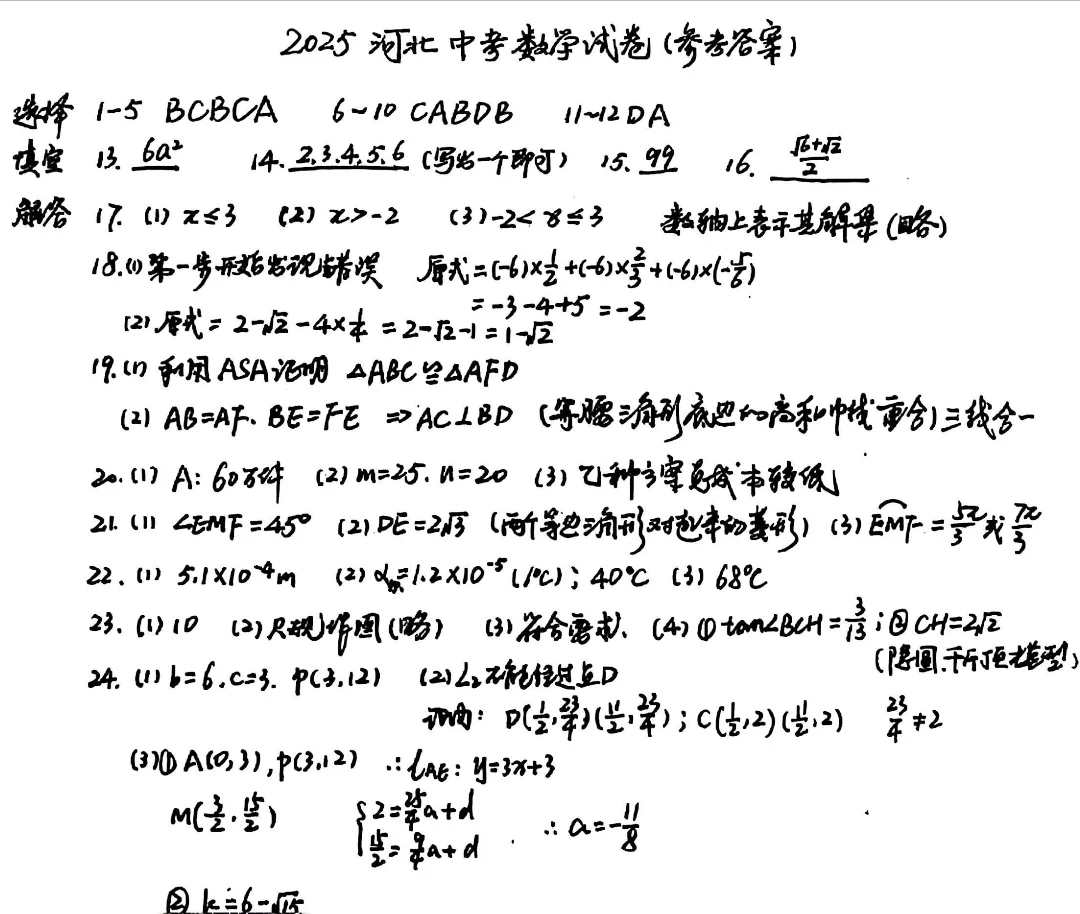 2025 河北中考数学试卷(参考答案)
选择 1-5 BCBCA 6~10 CABDB 11~12 DA
填空 13. 6a² 14. 2.3.4.5.6 (写出一个即可) 15. 99 16. (√6+√2)/2
解答 17. (1) x≤3 (2) x>-2 (3) -2<x≤3 数轴上表示其解集(略)
18.(1) 第一步开始出现错误 原式=(-6)×1/2+(-6)×2/3+(-6)×(-5/6)
=-3-4+5=-2
(2) 原式=2-√2-4×1/4=2-√2-1=1-√2
19.(1) 利用ASA证明 △ABC≌△AFD
(2) AB=AF. BE=FE ⇒AC⊥BD (等腰三角形底边的高和中线重合)三线合一
20.(1) A: 60万件 (2) m=25. n=20 (3) 乙种方案总成本较低
21. (1) ∠EMF=45° (2) DE=2√3 (两个等边三角形对起来的菱形) (3) EMF=5π/3或7π/3
22. (1) 5.1×10⁻⁴m (2) α=1.2×10⁻⁵(1/°C); 40°C (3) 68°C
23. (1) 10 (2) 尺规作图(略) (3) 符合要求. (4) ① tan∠BCH=3/13; ② CH=2√2
(隐圆.千斤顶模型)
24. (1) b=6. c=3. P(3,12) (2) L₂不能经过点D
说明: D(1/2,23/4)(11/2,23/4); C(1/2,2)(11/2,2) 23/4≠2
(3)① A(0,3), P(3,12) ∴ l AE: y=3x+3
M(3/2,15/2) {2=25/4a+d ∴ a=-11/8
15/2=9/4a+d
② k=6-√15